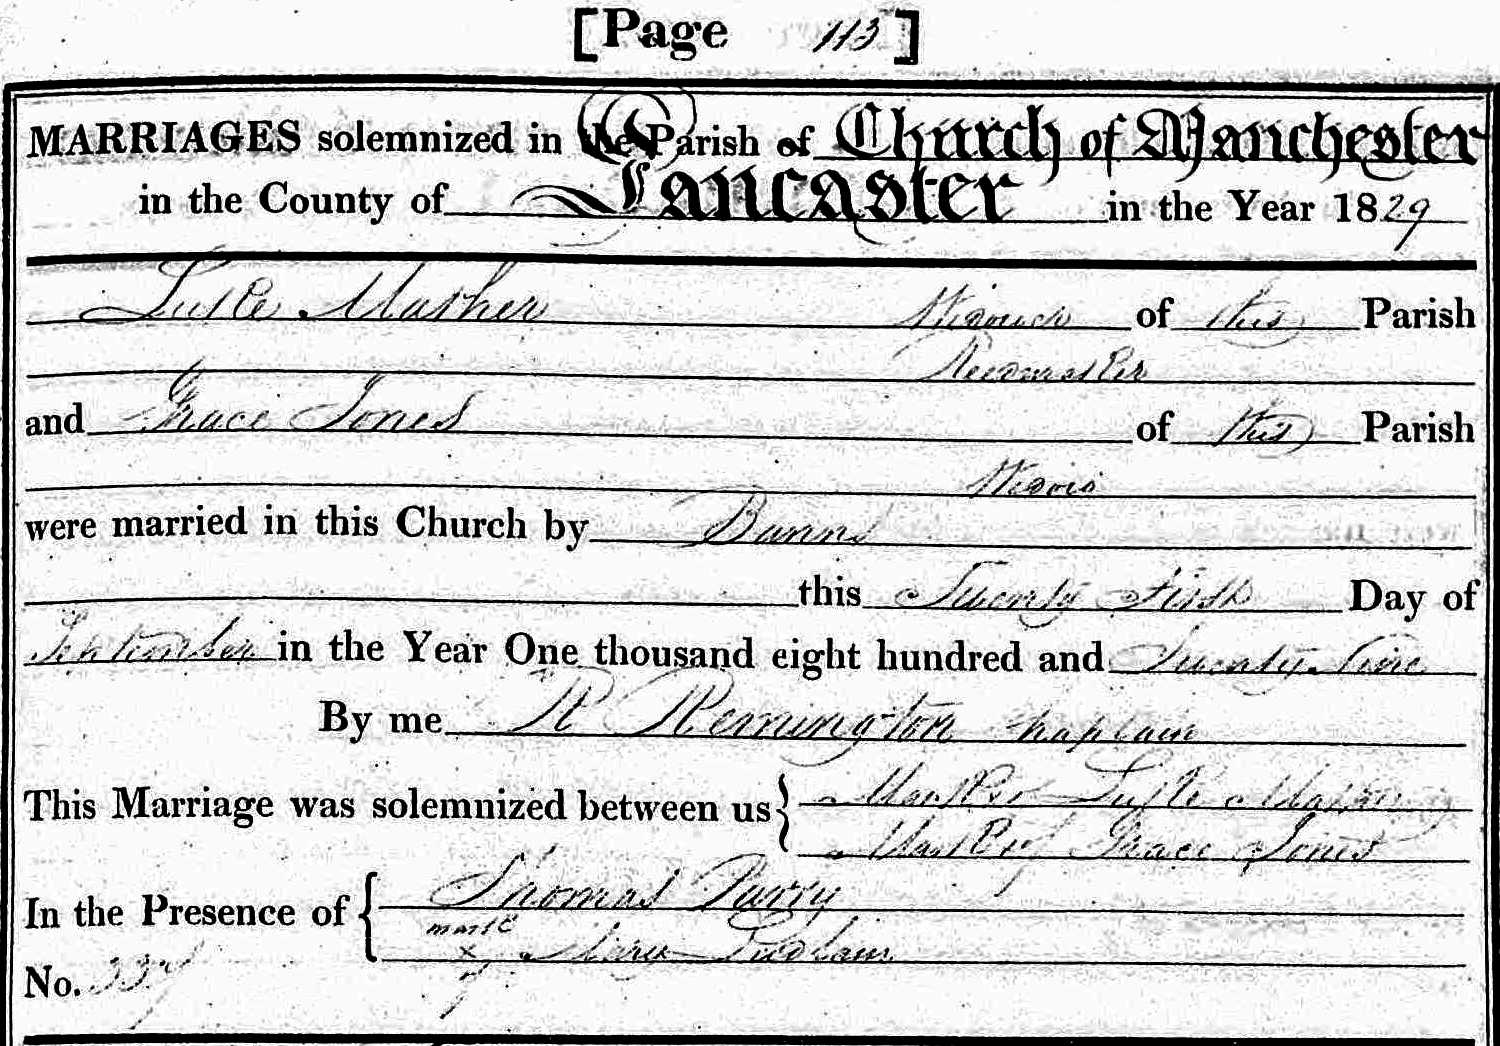 [Page 113]
MARRIAGES solemnized in the Parish of Church of Manchester
in the County of Lancaster in the Year 1829
Luke Mather Widower of this Parish
Reedmaker
and Grace Jones of this Parish
Widow
were married in this Church by Banns
this Twenty First Day of
September in the Year One thousand eight hundred and Twenty Nine
By me R Remington Chaplain
This Marriage was solemnized between us { Mark of Luke Mather
Mark of Grace Jones
In the Presence of { Thomas Parry
mark
x of Mary Ludlam
No. 337